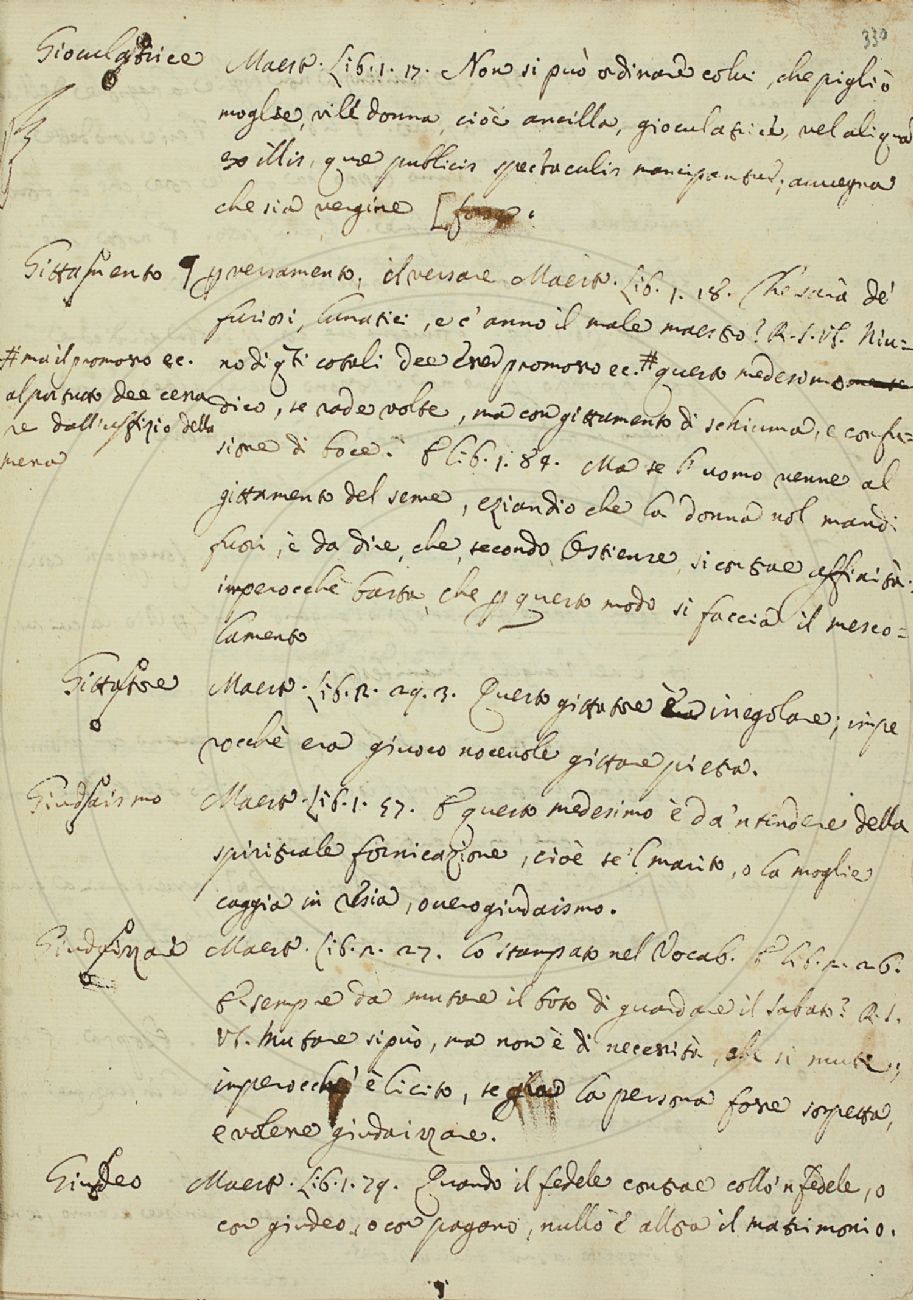 330
Gioculatrice Maest. Lib. 1. 17. Non si può ordinare colui, che pigliò
moglie, vile donna, cioè ancilla, gioculatrice, vel aliqua
ex illis, que publicis spectaculis mancipantur; auuegna
che sia vergine [
Gittamento ¶ ꝑ versamento, il versare Maest. Lib. 1. 18. Che sarà de'
furiosi, lunatici, e c'anno il male maestro? R. S. Vl. Niu=
no di q̃ti cotali dee esser promosso ec. # questo medesimo
# ma il promosso ec.
al postutto dee cessa
re dall'uffizio della
mera
dico, se rade volte, ma con gittamento di schiuma, e confu=
sione di boce. E Lib. 1. 84. Ma se l'uomo venne al
gittamento del seme, eziandio che la donna nol mandi
fuori, è da dire, che, secondo Ostiense, si contrae affinità.
imperocchè basta, che ꝑ questo modo si faccia il mesco=
lamento
Gittatore Maest. Lib. 2. 29. 3. Questo gittatore è irregolare; impe
rocchè era giuoco nocevole gittare pietra.
Giudaismo Maest. Lib. 1. 57. E questo medesimo è da 'ntendere della
spirituale fornicazione, cioè se 'l marito, o la moglie
caggia in resia, overo giudaismo.
Giudaizzare Maest. Lib. 2. 27. lo stampato nel Vocab. E Lib. 2. 26.
E sempre da mutare il boto di guardare il sabato? R. S.
Vl. Mutare si può, ma non è di necessità, che si muti;
imperocchè è licito, se la persona fosse sospetta,
e volesse giudaizzare.
Giudeo Maest. Lib. 1. 79. Quando il fedele contrae collo 'nfedele, o
con giudeo, o con pagano, nullo è allora il matrimonio.